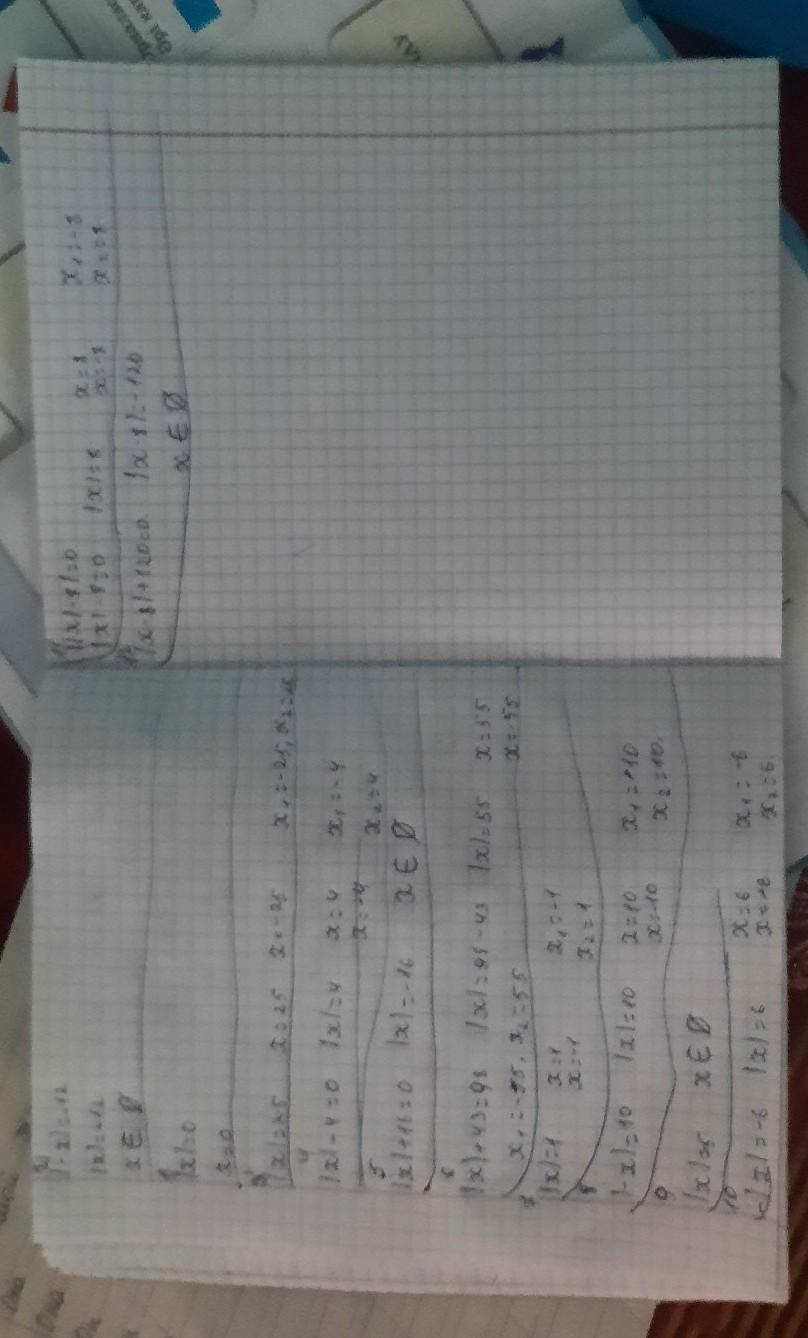 |-x|=-12
|x|=-12
x∈Ø
|x|=0
x=0
|x|=25 x=25 x=-25 x₁=-25,
4
|x|-4=0 |x|=4 x=4 x₁=-4
x=-4 x₂=4
5
|x|+16=0 |x|=-16 x∈Ø
6
|x|+43=98 |x|=98-43 |x|=55 x=55
x₁=-55, x₂=55 x=-55
7
|x|=1 x=1 x₁=-1
x=-1 x₂=1
8
|-x|=10 |x|=10 x=10 x₁=-10
x=-10 x₂=10.
9
x∈Ø
10
-|x|=-6 |x|=6 x=6 x₁=-6
x=-6 x₂=6.
11
||x|-8|=0
|x|-8=0 |x|=8 x=8 x₁=-8
x=-8 x₂=8
12
|x-8|+120=0 |x-8|=-120
x∈Ø